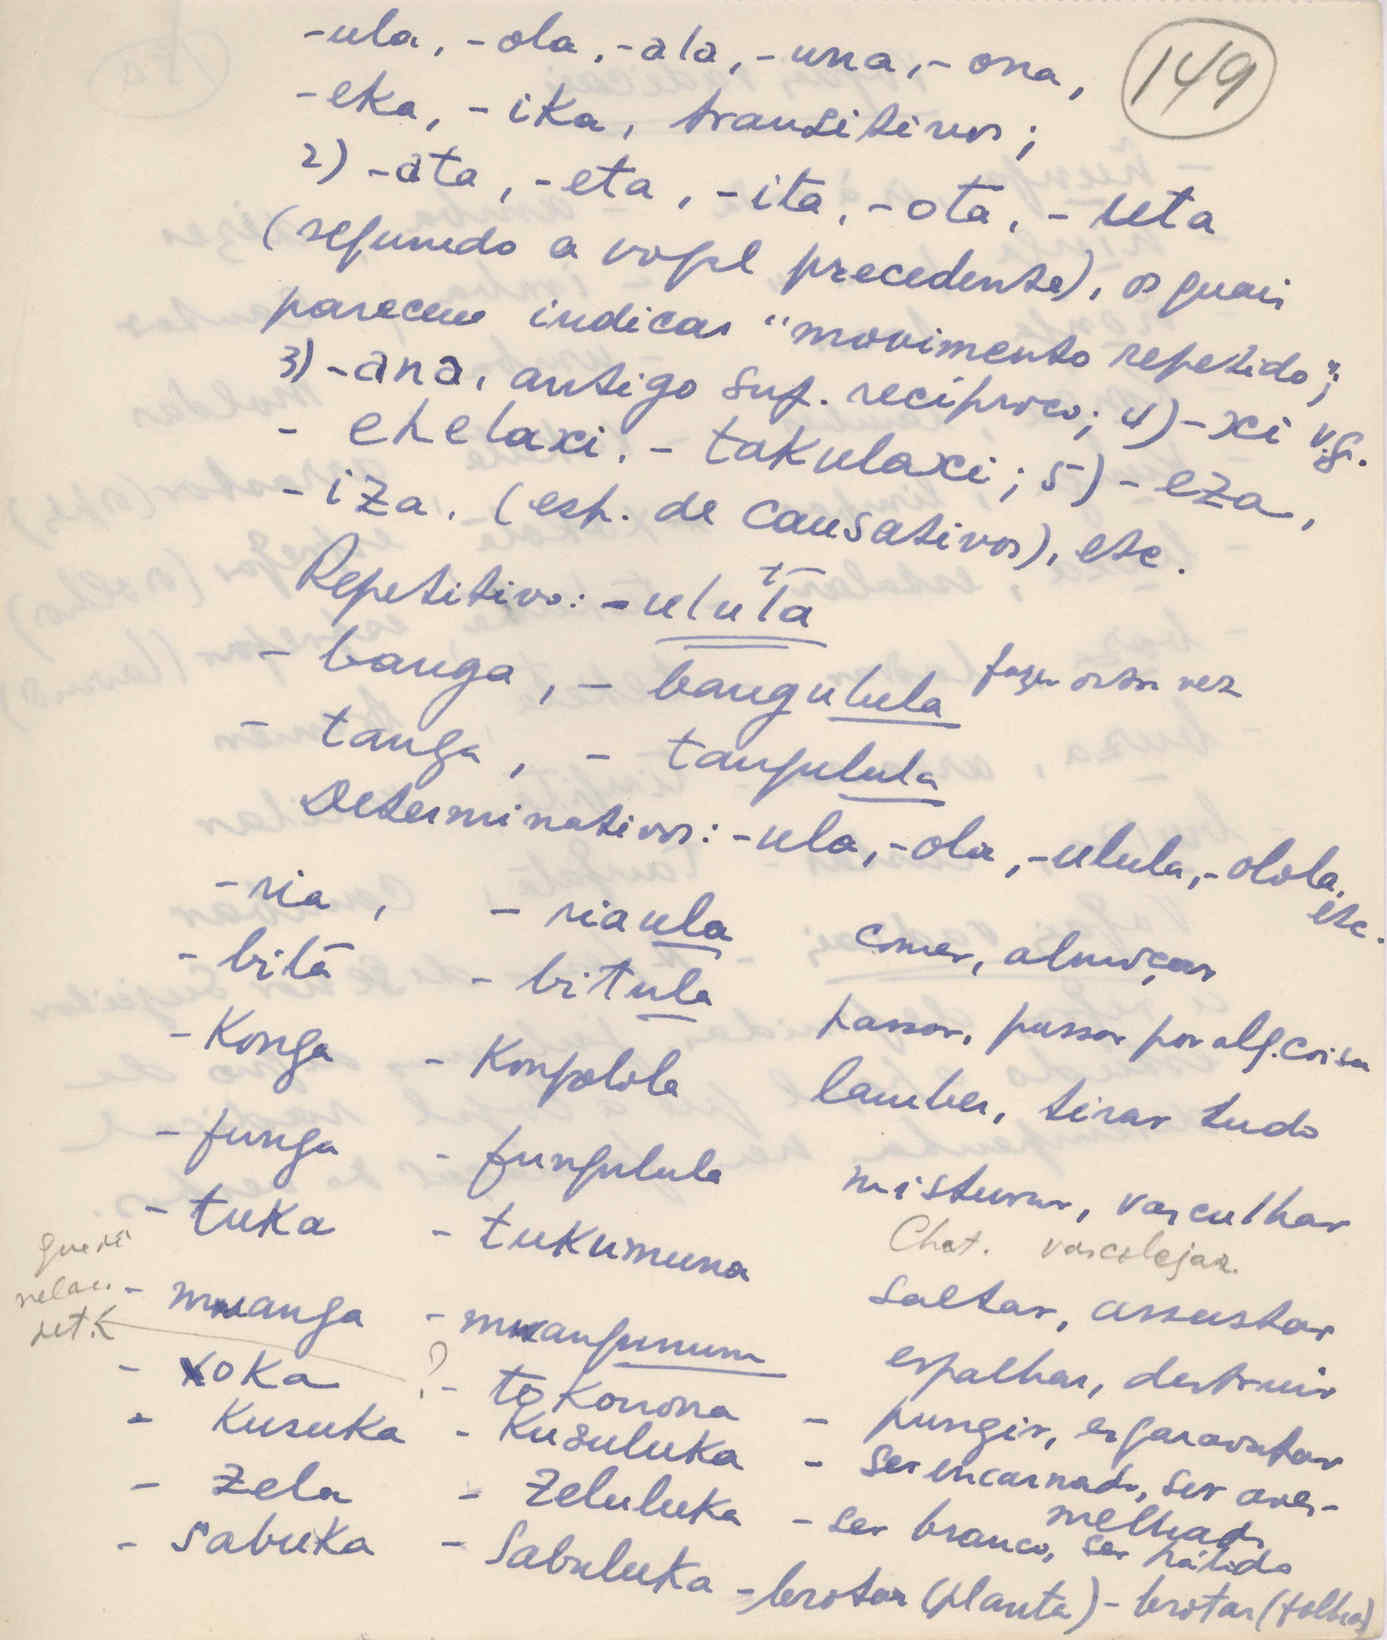 149
-ula, -ola, -ala, -una, -ona,
-eka, -ika, transitivos;
2) -ata, -eta, -ita, -ota, -uta
(segundo a vogal precedente), os quais
parecem indicar "movimento repetido";
3) -ana, antigo suf. recíproco; 4) -xi v.g.
- ehelaxi, - takulaxi; 5) -eza,
-iza, (esp. de causativos), etc.
Repetitivo: -uluta
- banga, - bangulula fazer outra vez
- tanga, - tangulula
Determinativos: -ula, -ola, -ulula, -olola,
etc.
-ria, - riaula comer, almoçar
- bita - bitula passar, passar por alg. coisa
- Konga - Kongolola lamber, tirar tudo
- funga - fungulula misturar, vasculhar
Chat. vascolejar.
- tuka - tukumuna saltar, assustar
- mwanga - mwangununa espalhar, destruir
- xoka ? - tokonona - pungir, esgaravatar
- Kusuka - Kusuluka - ser encarnado, ser aver-
melhado
- zela - zeluluka - ser branco, ser pálido
- sabuka - sabuluka - brotar (planta) - brotar (folhas)